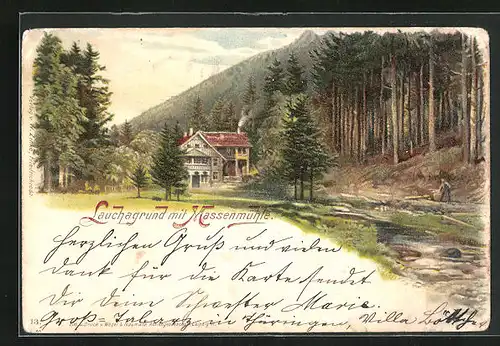 Lauchagrund mit Massenmühle.
herzlichen Gruß und vielen
dank für die Karte sendet
Dir Deine Schwester Marie
Groß-Tabarz in Thüringen, Villa
13.